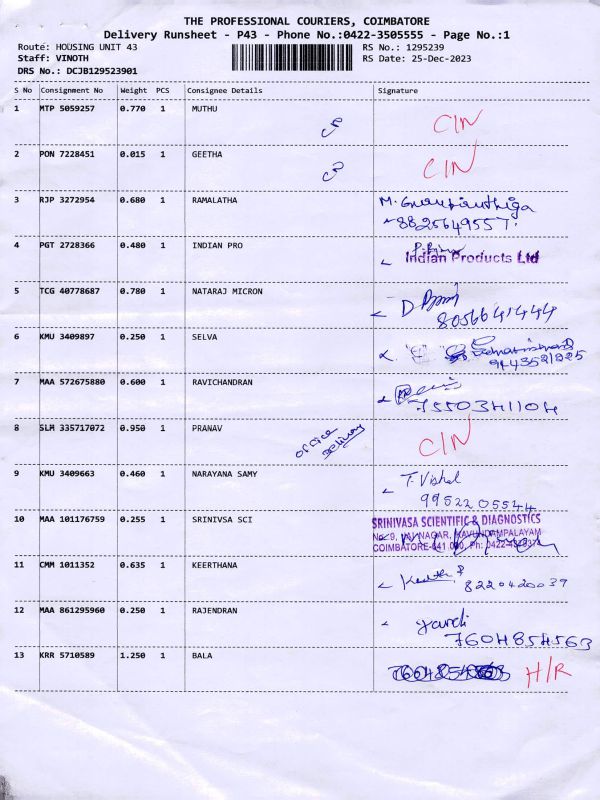 THE PROFESSIONAL COURIERS, COIMBATORE
Delivery Runsheet - P43 - Phone No.:0422-3505555 - Page No.:1
Route: HOUSING UNIT 43 RS No.: 1295239
Staff: VINOTH RS Date: 25-Dec-2023
DRS No.: DCJB129523901
S No Consignment No Weight PCS Consignee Details Signature
1 MTP 5059257 0.770 1 MUTHU CIN
2 PON 7228451 0.015 1 GEETHA CIN
3 RJP 3272954 0.680 1 RAMALATHA M.
8825649557
4 PGT 2728366 0.480 1 INDIAN PRO
Indian Products Ltd
5 TCG 40778687 0.780 1 NATARAJ MICRON D
8056641444
6 KMU 3409897 0.250 1 SELVA
7 MAA 572675880 0.600 1 RAVICHANDRAN
7550341104
8 SLM 335717072 0.950 1 PRANAV office delivery CIN
9 KMU 3409663 0.460 1 NARAYANA SAMY T. Vishal
9952205544
10 MAA 101176759 0.255 1 SRINIVSA SCI SRINIVASA SCIENTIFIC & DIAGNOSTICS
NAGAR, KAVUNDAMPALAYAM
COIMBATORE-641 Ph: 0422
11 CMM 1011352 0.635 1 KEERTHANA
8220420039
12 MAA 861295960 0.250 1 RAJENDRAN
7604854563
13 KRR 5710589 1.250 1 BALA H/R